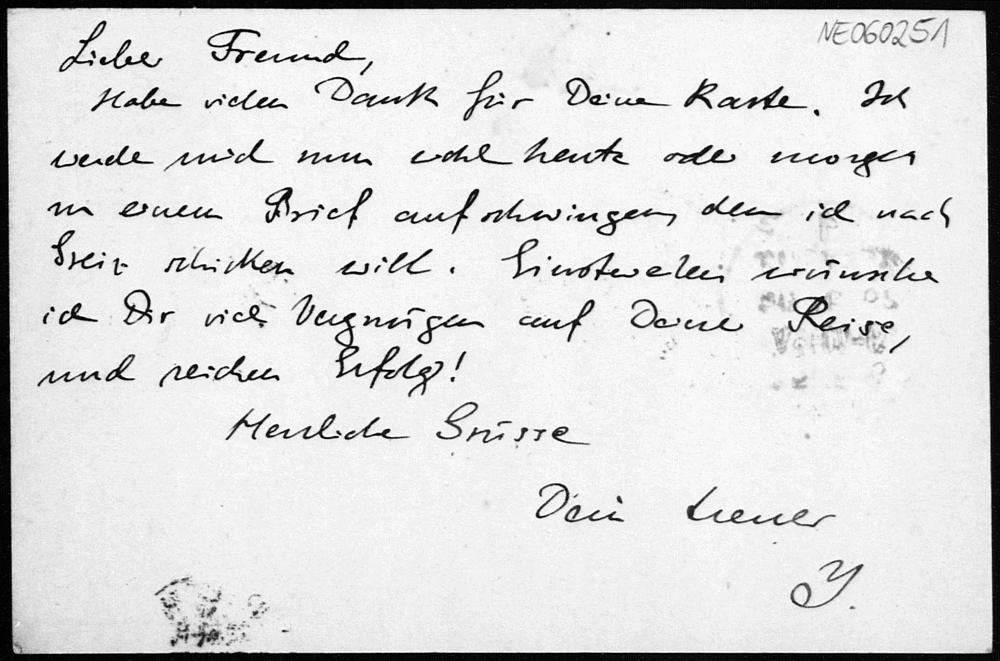 NE060251
Lieber Freund,
Habe vielen Dank für Deine Karte. Ich
werde mich nun wohl heute oder morgen
zu einem Brief aufschwingen, den ich nach
Greiz schicken will. Einstweilen wünsche
ich Dir viel Vergnügen auf Deiner Reise,
und reichen Erfolg!
Herzliche Grüsse
Dein treuer
Y.